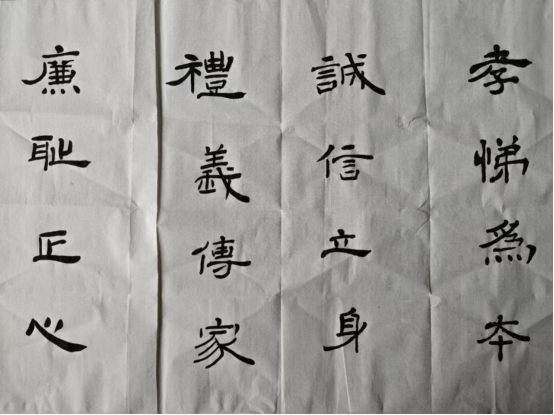 孝悌為本
誠信立身
禮義傳家
廉耻正心